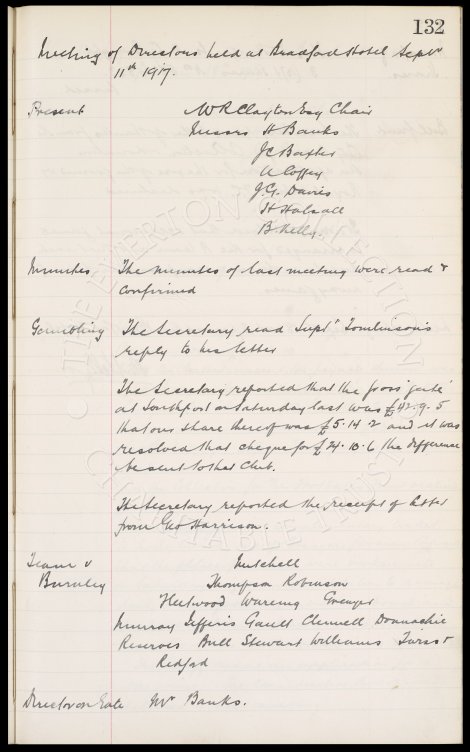 132
Meeting of Directors held at Bradford Hotel Septr
11th 1917.
Present W R Clayton Esq Chair
Messrs H Banks
J C Baxter
A Coffey
J. G. Davies
H Halsall
B. Kelly.
Minutes The minutes of last meeting were read &
confirmed
Gambling The Secretary read Supt Tomlinson's
reply to his letter
The Secretary reported that the gross 'gate'
at Southport on Saturday last was £42. 9. 5
that our share thereof was £5. 14. 2 and it was
resolved that cheque for £24. 10. 6 the difference
be sent to that Club.
The Secretary reported the receipt of letter
from Geo Harrison.
Team v Mitchell
Burnley Thompson Robinson
Fleetwood Wareing Grenyer
Murray Jefferis Gault Clennell Donnachie
Reserves Bull Stewart Williams &
Redford
Director on Gate Mr Banks.
THE EVERTON COLLECTION
CHARITABLE TRUST